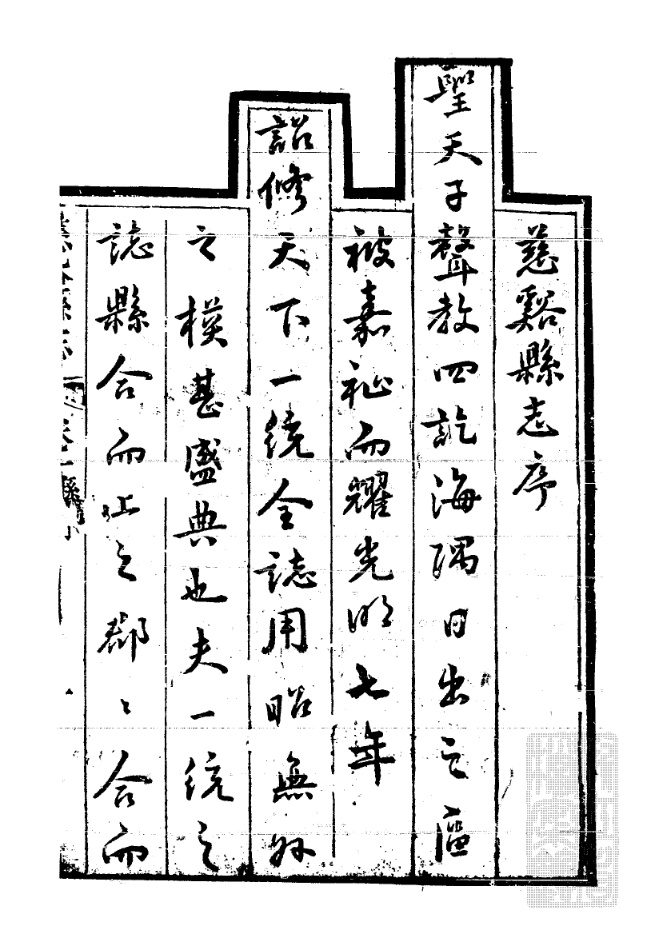 慈谿縣志序
聖天子聲教四訖海隅日出之區
被嘉祉而耀光明七年
詔修天下一統全誌用昭無外
之模甚盛典也夫一統之
誌縣合而上之郡〻合而
慈谿縣志